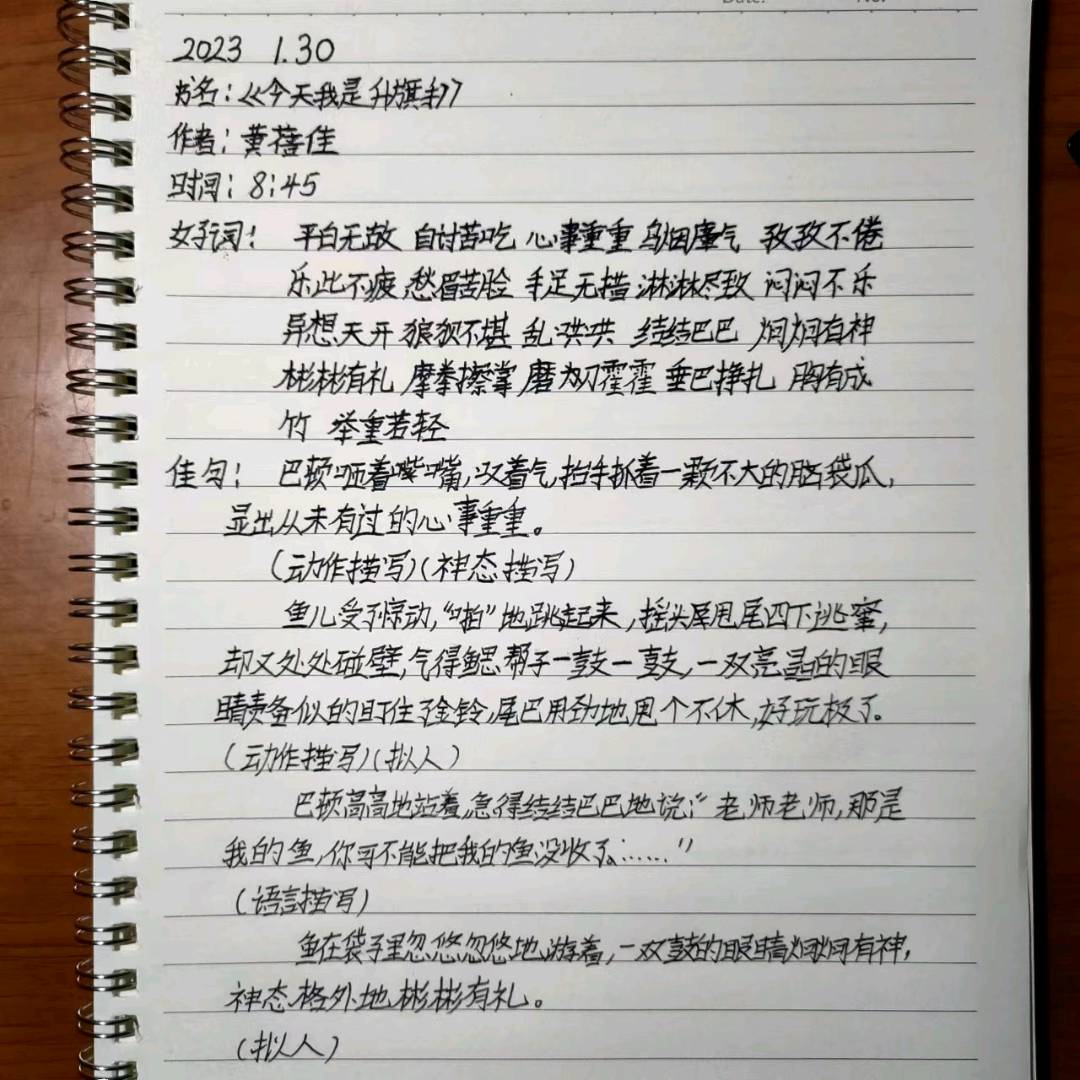 Date: No.
2023 1.30
书名:《今天我是升旗手》
作者:黄蓓佳
时间:8:45
好词: 平白无故 自讨苦吃 心事重重 乌烟瘴气 孜孜不倦
乐此不疲 愁眉苦脸 手足无措 淋淋尽致 闷闷不乐
异想天开 狼狈不堪 乱哄哄 结结巴巴 炯炯有神
彬彬有礼 摩拳擦掌 磨刀霍霍 垂巴挣扎 胸有成
竹 举重若轻
佳句: 巴顿哂着嘴嘴,叹着气,抬手抓着一颗不大的脑袋瓜,
显出从未有过的心事重重。
(动作描写)(神态描写)
鱼儿受了惊动,“啪”地跳起来,摇头甩尾四下逃窜,
却又处处碰壁,气得鳃帮子一鼓一鼓,一双亮晶的眼
睛责备似的盯住了金铃,尾巴用劲地甩个不休,好玩极了。
(动作描写)(拟人)
巴顿高高地站着,急得结结巴巴地说:“老师老师,那是
我的鱼,你可不能把我的鱼没收了,……”
(语言描写)
鱼在袋子里忽悠忽悠地游着,一双鼓的眼睛炯炯有神,
神态格外地彬彬有礼。
(拟人)